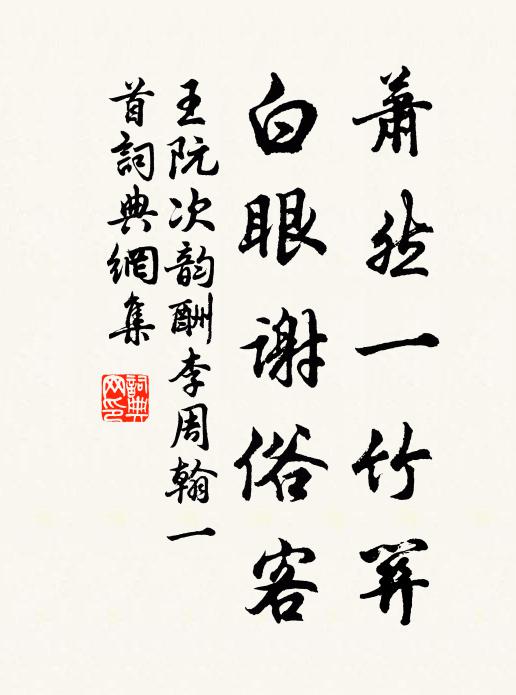 蕭然一竹笄
白眼謝俗客
王阮次韵酬李周翰一
首詞典網集
詞典
网印